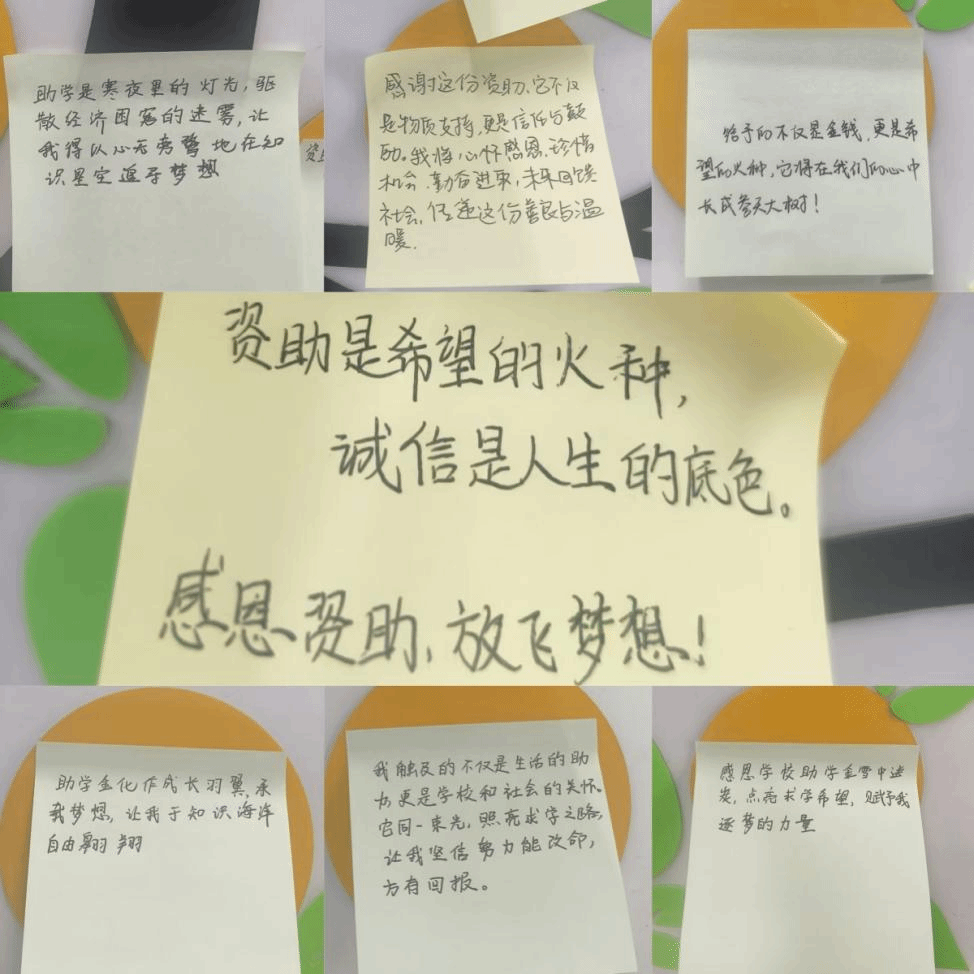 助学是寒夜里的灯光，驱
散经济困窘的迷雾，让
我得以心无旁骛地在知
识星空追寻梦想
资
感谢这份资助、它不仅
是物质支持，更是信任与鼓
励。我将心怀感恩、珍惜
机会、勤奋进取，未来回馈
社会，传递这份善良与温
暖．
给予的不仅是金钱，更是希
望的火种，它将在我们的心中
长成参天大树！
资助是希望的火种，
诚信是人生的底色。
感恩资助、放飞梦想！
助学金化作成长羽翼，承
我梦想，让我于知识海洋
自由翱翔
我触及的不仅是生活的助
力更是学校和社会的关怀。
它同一束光，照亮求学之路，
让我坚信努力能改命，
方有回报。
感恩学校助学金雪中送
炭，点亮求学希望，赋予我
逐梦的力量